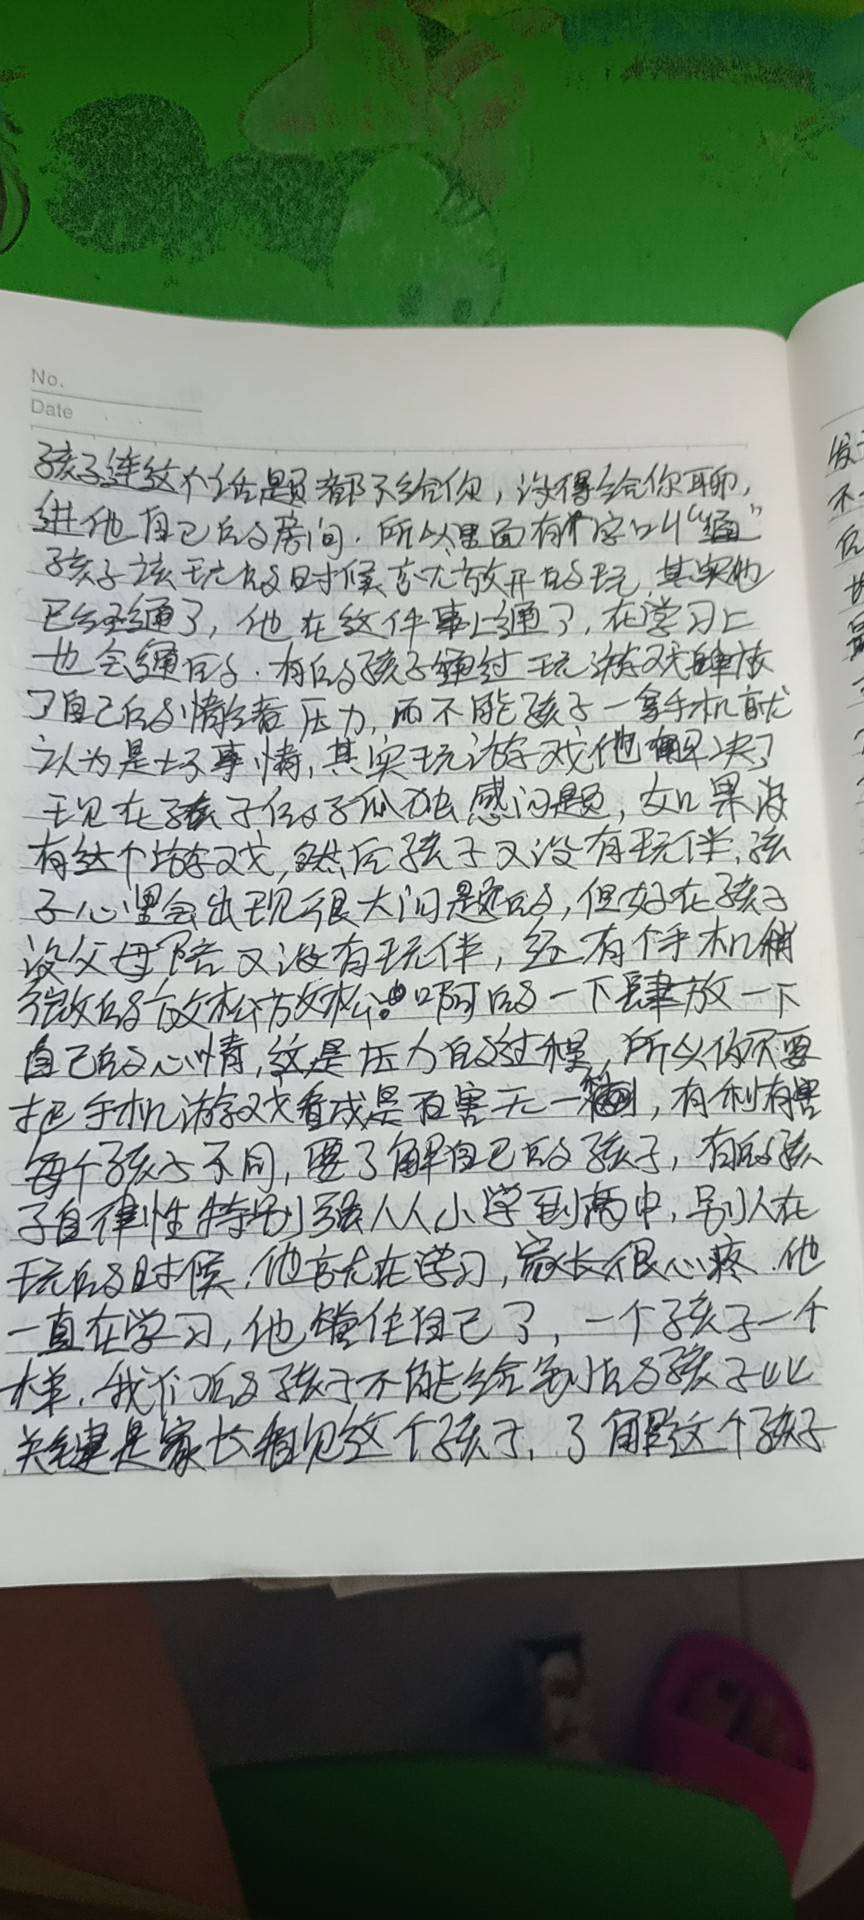 No.
Date
孩子连这个话题都不给你，没得给你聊，
进他自己的房间．所以里面有个字叫“通”
孩子该玩的时候就放开的玩，其实他
已经通了，他在这件事上通了，在学习上
也会通的．有的孩子通过玩游戏释放
了自己的情绪压力，而不能孩子一拿手机就
认为是坏事情，其实玩游戏他解决了
现在孩子的孤独感问题，如果没
有这个游戏，然后孩子又没有玩伴，孩
子心里会出现很大问题的，但好在孩子
没父母陪又没有玩伴，还有个手机稍
微的放松放松，啊的一下肆放一下
自己的心情，这是压力的过程，所以你不要
把手机游戏看成是百害无一利，有利有害
每个孩子不同，要了解自己的孩子，有的孩
子自律性特别强从小学到高中，别人在
玩的时候．他就在学习，家长很心疼．他
一直在学习，他管住自己了，一个孩子一个
样．我们的孩子不能给别的孩子比
关键是家长看见这个孩子，了解这个孩子
发
不
的